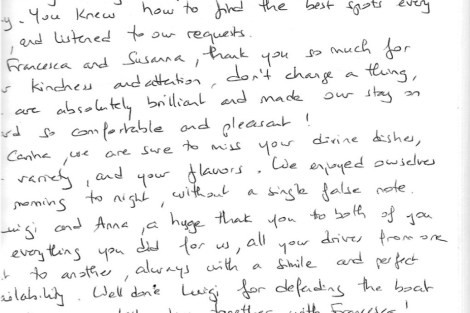 y. You knew how to find the best spots every
, and listened to our requests.
Francesca and Susanna, thank you so much for
kindness and attention, don't change a thing,
are absolutely brilliant and made our stay on
rd so comfortable and pleasant !
Carina, we are sure to miss your divine dishes,
variety, and your flavors. We enjoyed ourselves
morning to night, without a single false note.
uigi and Anna, a huge thank you to both of you
everything you did for us, all your drives from one
t to another, always with a smile and perfect
ailability. Well done Luigi for defending the boat
together with Francesca !